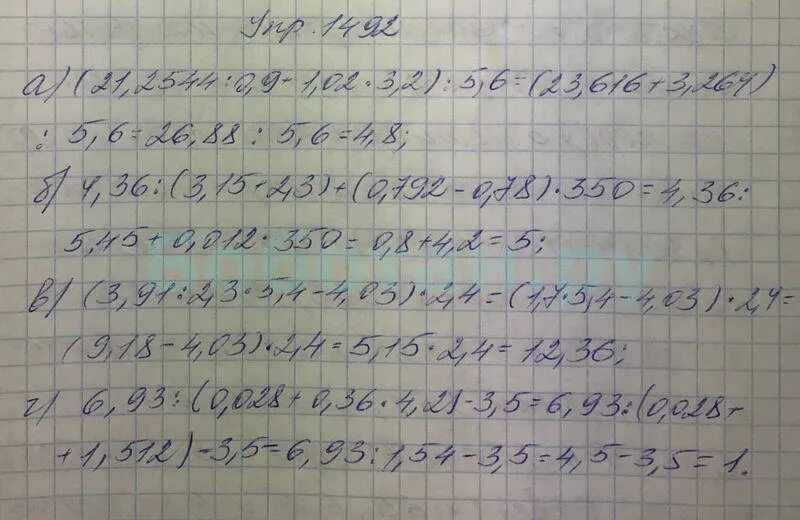 Упр. 1492
а) (21,2544 : 0,9 + 1,02 · 3,2) : 5,6 = (23,616 + 3,264)
: 5,6 = 26,88 : 5,6 = 4,8;
б) 4,36 : (3,15 + 2,3) + (0,792 - 0,78) · 350 = 4,36 :
5,45 + 0,012 · 350 = 0,8 + 4,2 = 5;
в) (3,91 : 2,3 · 5,4 - 4,03) · 2,4 = (1,7 · 5,4 - 4,03) · 2,4 =
(9,18 - 4,03) · 2,4 = 5,15 · 2,4 = 12,36;
г) 6,93 : (0,028 + 0,36 · 4,2) - 3,5 = 6,93 : (0,028 +
+ 1,512) - 3,5 = 6,93 : 1,54 - 3,5 = 4,5 - 3,5 = 1.